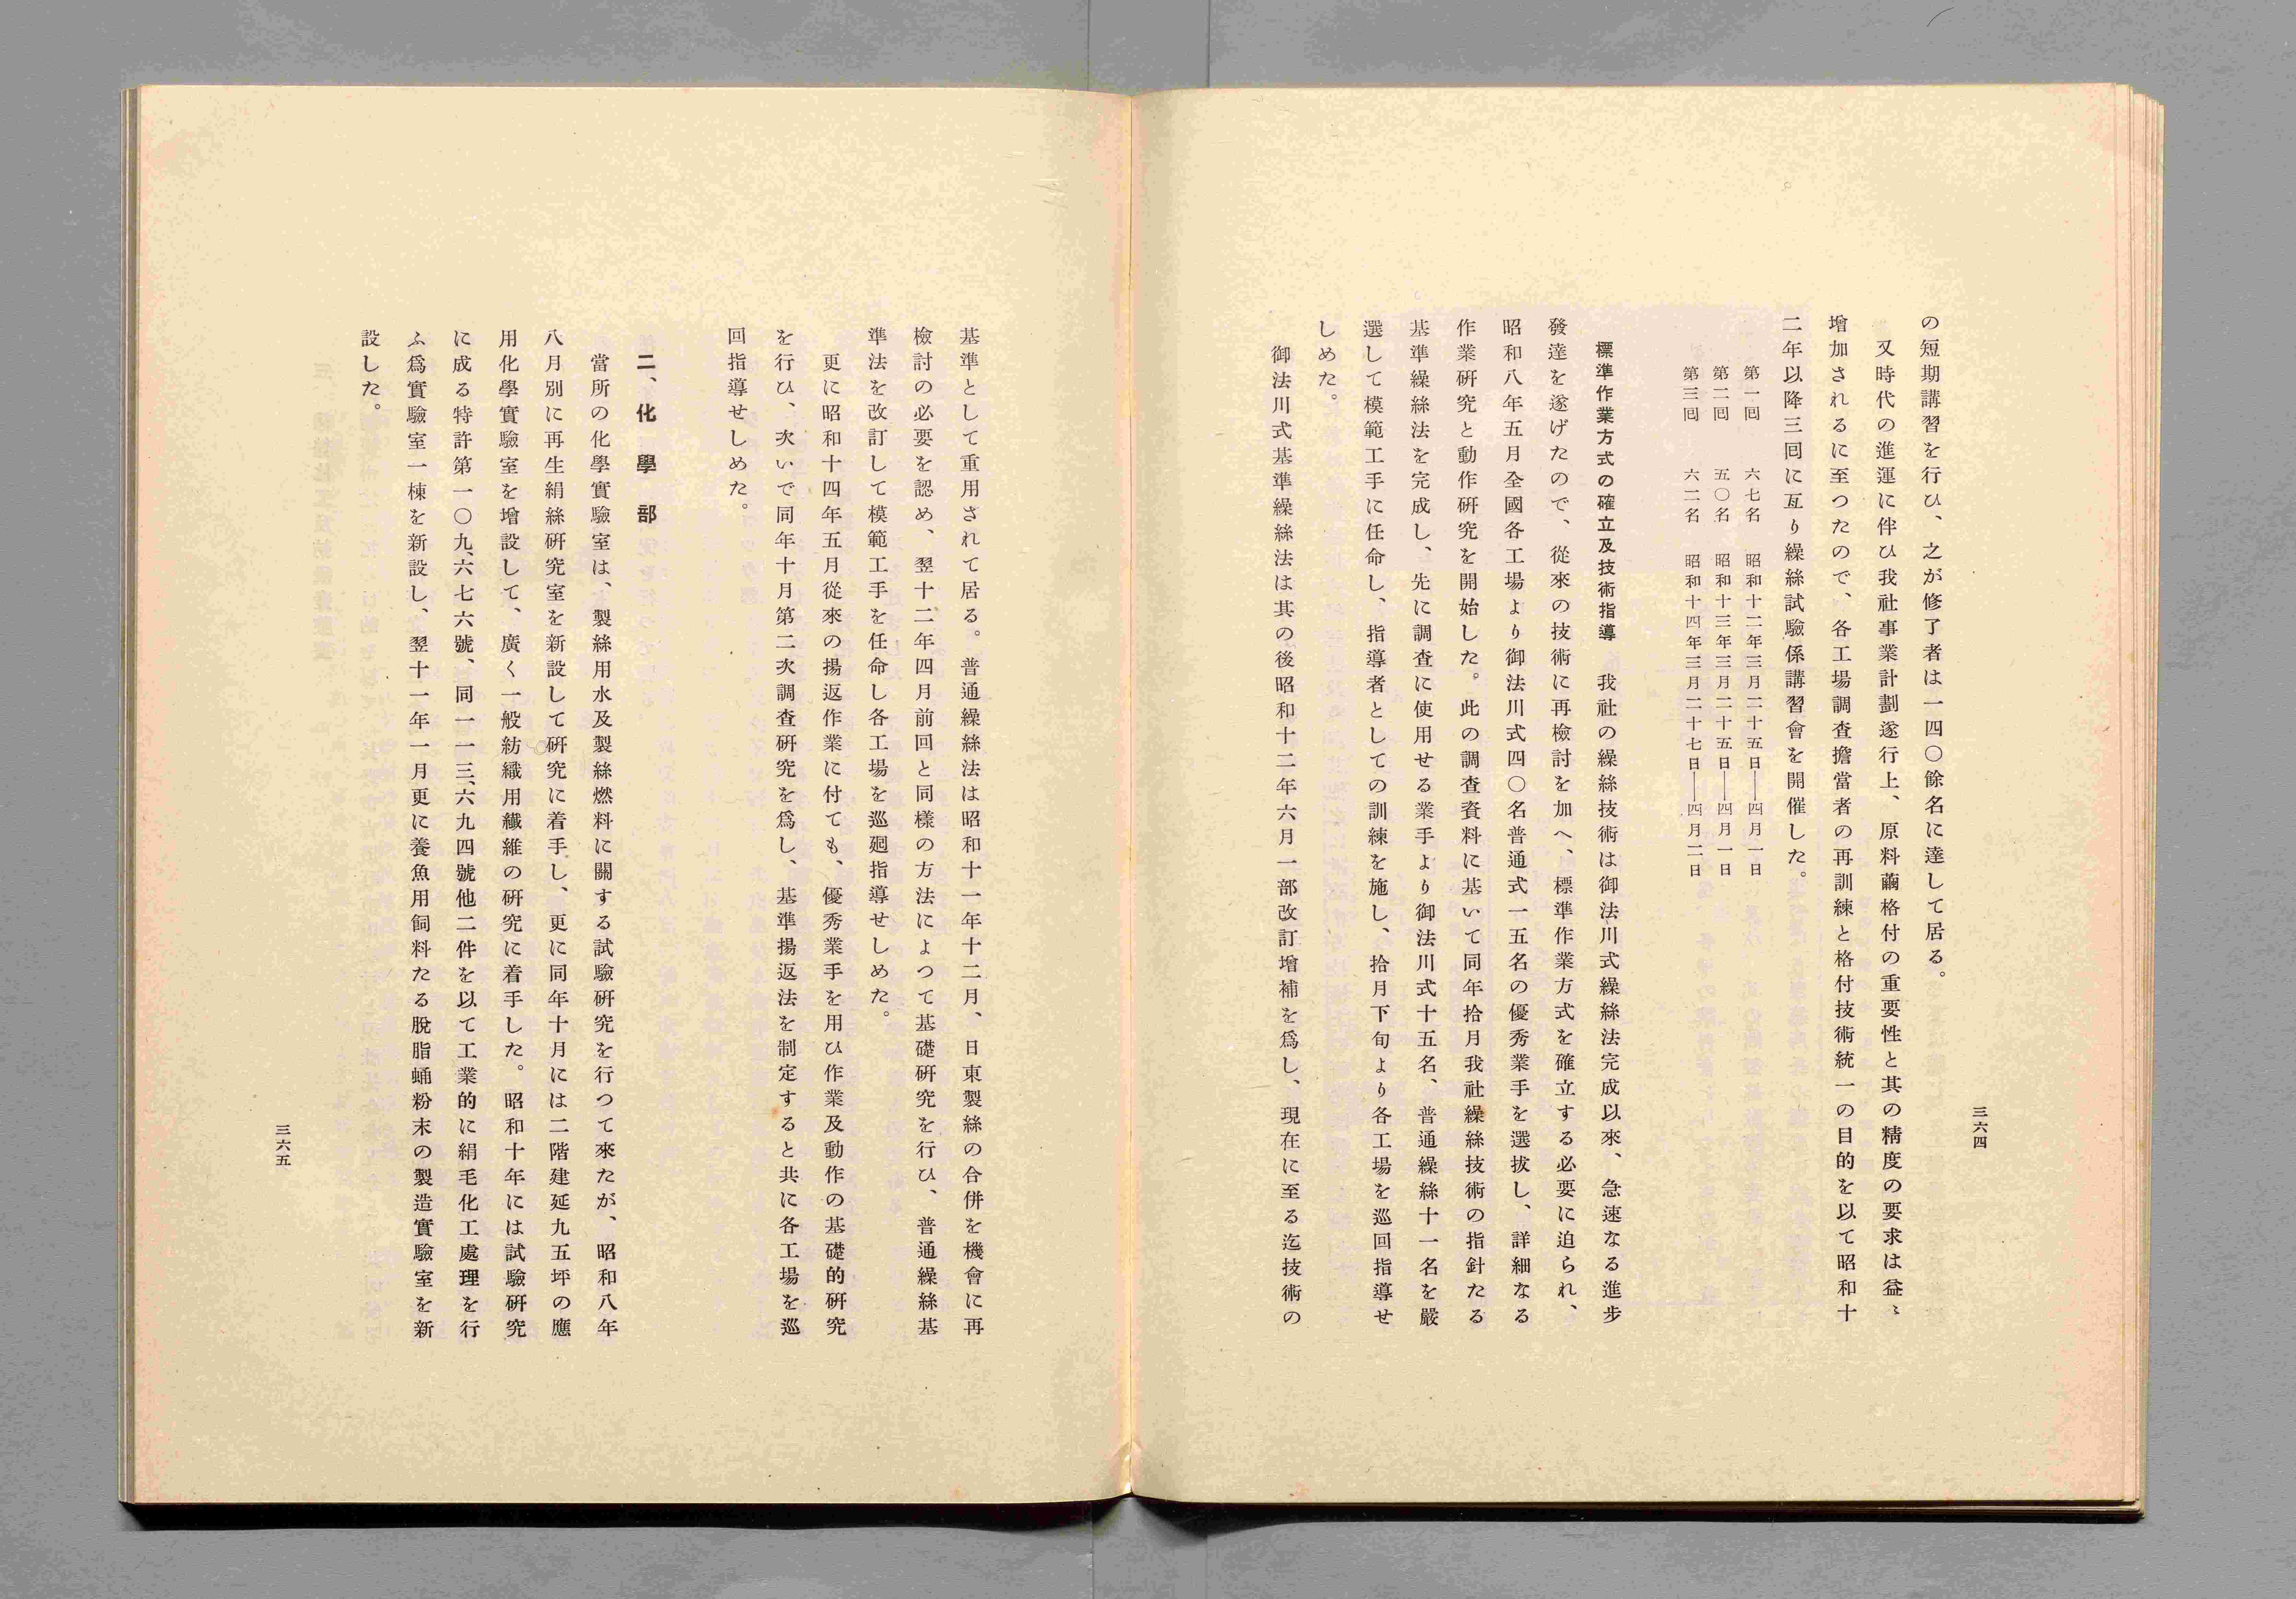 三六四
の短期講習を行ひ、之が修了者は一四〇餘名に達して居る。
又時代の進運に伴ひ我社事業計劃遂行上、原料繭格付の重要性と其の精度の要求は益〻
增加されるに至つたので、各工場調査擔當者の再訓練と格付技術統一の目的を以て昭和十
二年以降三囘に亙り繰絲試驗係講習會を開催した。
第一囘　六七名　昭和十二年三月二十五日――四月一日
第二囘　五〇名　昭和十三年三月二十五日――四月一日
第三囘　六二名　昭和十四年三月二十七日――四月二日
標準作業方式の確立及技術指導　我社の繰絲技術は御法川式繰絲法完成以來、急速なる進步
發達を遂げたので、從來の技術に再檢討を加へ、標準作業方式を確立する必要に迫られ、
昭和八年五月全國各工場より御法川式四〇名普通式一五名の優秀業手を選拔し、詳細なる
作業硏究と動作硏究を開始した。此の調査資料に基いて同年拾月我社繰絲技術の指針たる
基準繰絲法を完成し、先に調査に使用せる業手より御法川式十五名、普通繰絲十一名を嚴
選して模範工手に任命し、指導者としての訓練を施し、拾月下旬より各工場を巡回指導せ
しめた。
御法川式基準繰絲法は其の後昭和十二年六月一部改訂增補を爲し、現在に至る迄技術の
基準として重用されて居る。普通繰絲法は昭和十一年十二月、日東製絲の合併を機會に再
檢討の必要を認め、翌十二年四月前回と同樣の方法によつて基礎硏究を行ひ、普通繰絲基
準法を改訂して模範工手を任命し各工場を巡廻指導せしめた。
更に昭和十四年五月從來の揚返作業に付ても、優秀業手を用ひ作業及動作の基礎的硏究
を行ひ、次いで同年十月第二次調査硏究を爲し、基準揚返法を制定すると共に各工場を巡
回指導せしめた。
二、化學部
當所の化學實驗室は、製絲用水及製絲燃料に關する試驗硏究を行つて來たが、昭和八年
八月別に再生絹絲硏究室を新設して硏究に着手し、更に同年十月には二階建延九五坪の應
用化學實驗室を增設して、廣く一般紡織用纎維の硏究に着手した。昭和十年には試驗硏究
に成る特許第一〇九、六七六號、同一一三、六九四號他二件を以て工業的に絹毛化工處理を行
ふ爲實驗室一棟を新設し、翌十一年一月更に養魚用飼料たる脫脂蛹粉末の製造實驗室を新
設した。
三六五